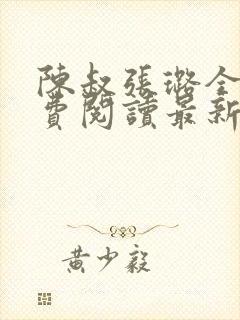 陳叔張璐全
費閱讀最新
黃少毅